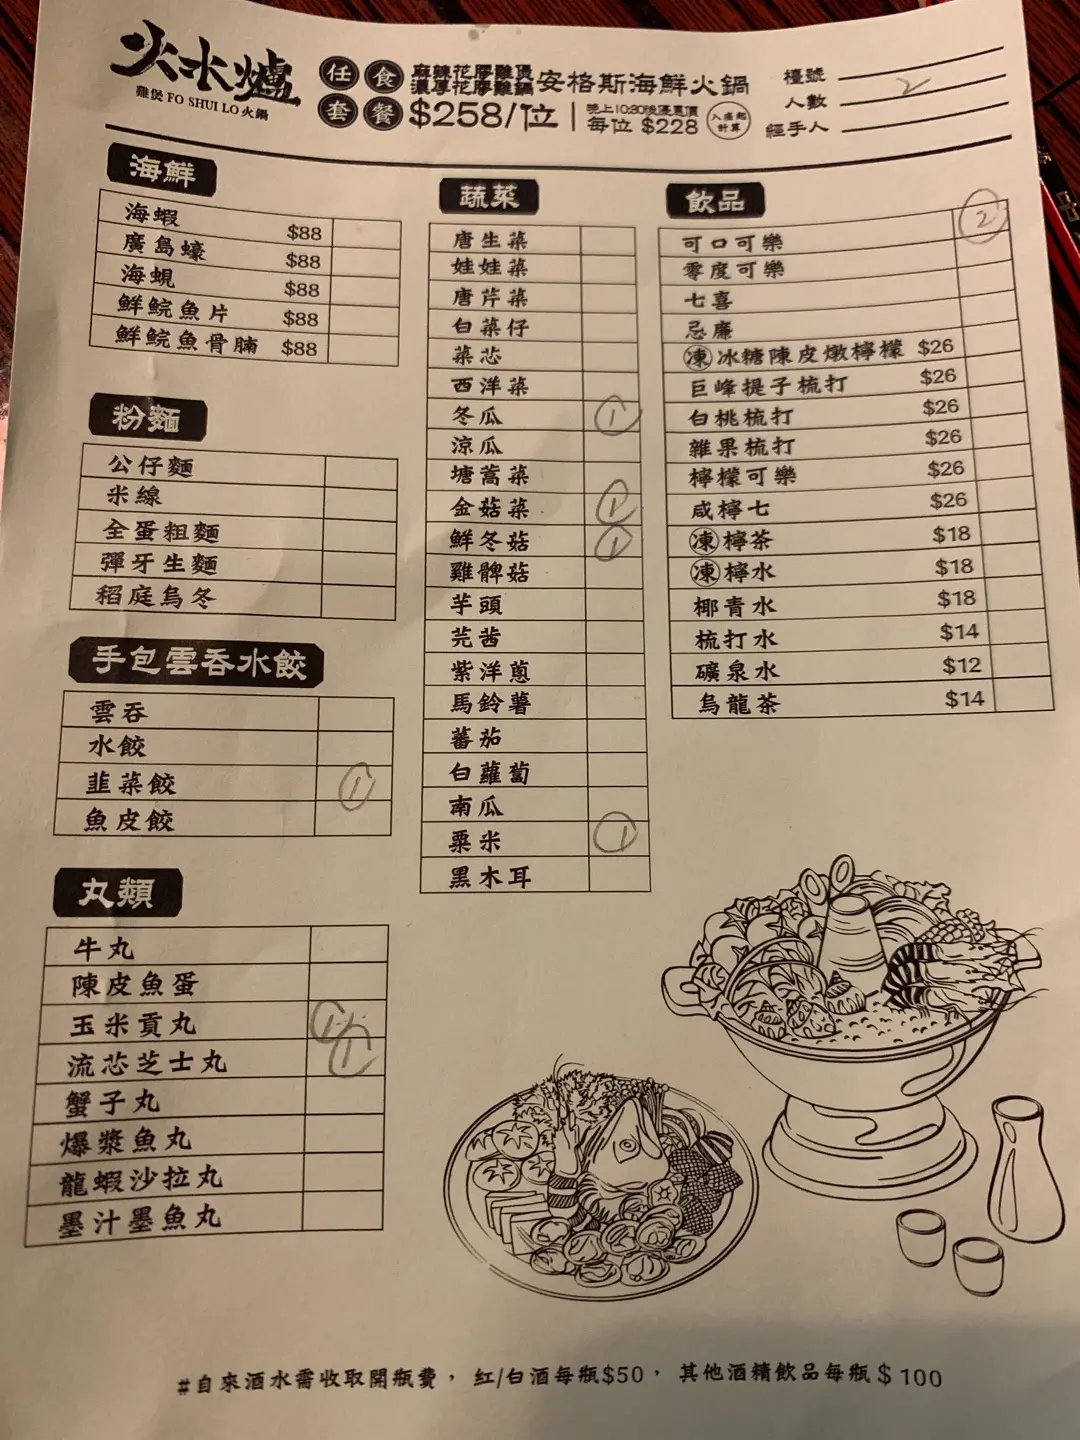 火水爐
雞煲 FO SHUI LO 火鍋
任食套餐
麻辣花膠雞煲
濃厚花膠雞鍋
安格斯海鮮火鍋
$258/位
晚上10:30後優惠價
每位 $228
入座起計算
檯號
人數 2
經手人
海鮮
海蝦 $88
廣島蠔 $88
海蜆 $88
鮮鯇魚片 $88
鮮鯇魚骨腩 $88
粉麵
公仔麵
米線
全蛋粗麵
彈牙生麵
稻庭烏冬
手包雲吞水餃
雲吞
水餃
韭菜餃 1
魚皮餃
丸類
牛丸
陳皮魚蛋
玉米貢丸 1
流芯芝士丸 1
蟹子丸
爆漿魚丸
龍蝦沙拉丸
墨汁墨魚丸
蔬菜
唐生菜
娃娃菜
唐芹菜
白菜仔
菜芯
西洋菜
冬瓜 1
涼瓜
塘蒿菜
金菇菜 1
鮮冬菇 1
雞髀菇
芋頭
芫茜
紫洋蔥
馬鈴薯
蕃茄
白蘿蔔
南瓜
粟米 1
黑木耳
飲品
可口可樂 2
零度可樂
七喜
忌廉
凍冰糖陳皮燉檸檬 $26
巨峰提子梳打 $26
白桃梳打 $26
雜果梳打 $26
檸檬可樂 $26
咸檸七 $26
凍檸茶 $18
凍檸水 $18
椰青水 $18
梳打水 $14
礦泉水 $12
烏龍茶 $14
#自來酒水需收取開瓶費， 紅/白酒每瓶$50， 其他酒精飲品每瓶$100